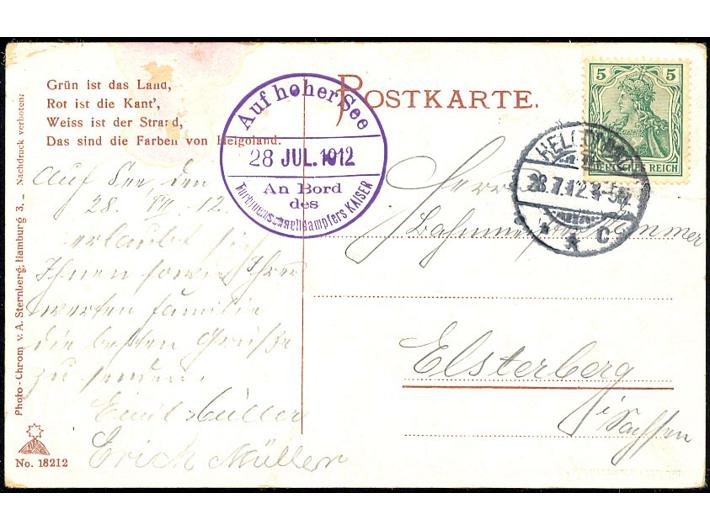 Grün ist das Land,
Rot ist die Kant',
Weiss ist der Strand,
Das sind die Farben von Helgoland.
POSTKARTE.
Auf hoher See
28 JUL. 1912
An Bord
des
Turbinenschnelldampfers KAISER
5 5
DEUTSCHES REICH
HELGOLAND
28.7.12.
* * C
Auf See, den
28. VII. 12.
erlaubt sich
Ihnen sowie Ihrer
werten Familie
die besten Grüße
zu senden.
Emil Müller
Erich Müller
Herrn
Elsterberg
i/Sachsen
Photo-Chrom v. A. Sternberg, Hamburg 3. _ Nachdruck verboten:
No. 18212